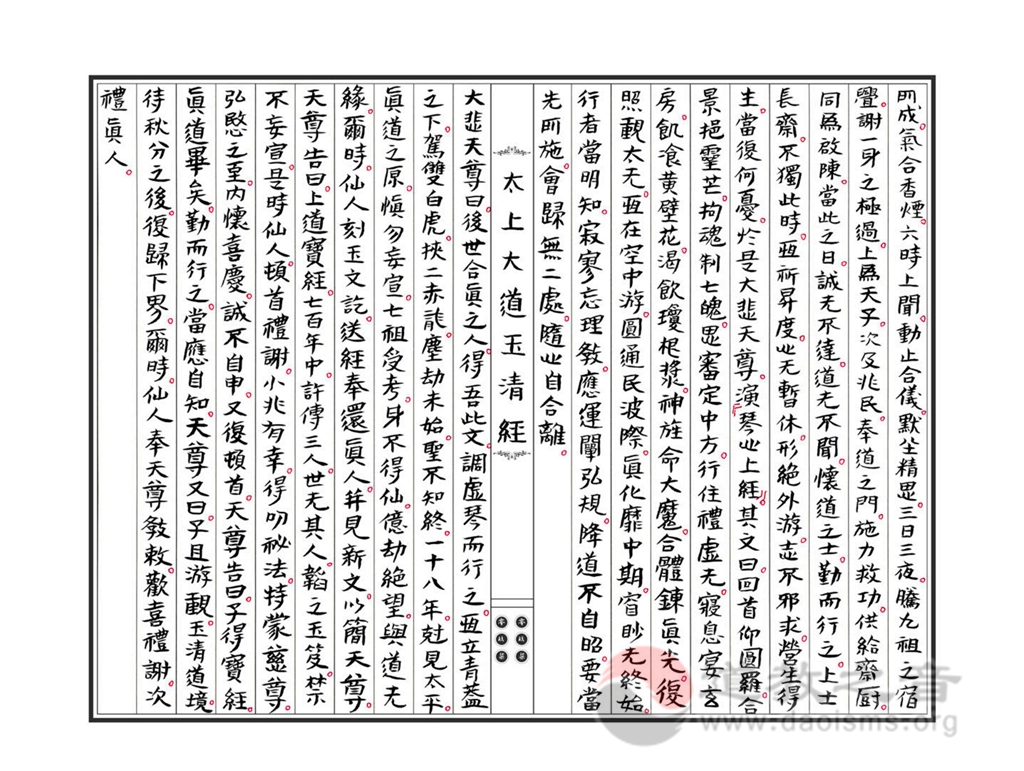 所成氣合香煙六時上聞動止合儀默坐精思三日三夜騰九祖之宿
舋謝一身之極過上爲天子次及兆民奉道之門施力救功供給齋厨
同爲啟陳當此之日誠无不達道无不聞懷道之士勤而行之上士
長齋不獨此時洹祈昇度心无暫休形絶外游志不邪求營生得
生當復何憂於是大悲天尊演琴心上經其文曰回首仰圓羅合
景挹靈芒拘魂制七魄思審定中方行住禮虛无寢息宴玄
房飢飡黄壁花渴飲瓊桹漿神旌命大魔合體鍊真光復
照觀太无洹在空中游圓通民波際真化靡中期窅眇无終始
行者當明知寂寥忘理教應運闡弘規降道不自昭要當
先所施會歸無二處隨心自合離
太上大道玉清經
大悲天尊曰後世合真之人得吾此文調虛琴而行之洹立青蓋
之下駕雙白虎挾二赤龍塵劫未始聖不知終一十八年尅見太平
真道之原慎勿妄宣七祖受考身不得仙億劫絶望與道无
緣爾時仙人刻玉文訖送經奉還真人并見新文以簡天尊
天尊告曰上道寶經七百年中許傳三人世无其人韜之玉笈禁
不妄宣是時仙人頓首禮謝小兆有幸得叨祕法特蒙慈尊
弘愍之至内懷喜慶誠不自申又復頓首天尊告曰子得寶經
真道畢矣勤而行之當應自知天尊又曰子且游觀玉清道境
待秋分之後復歸下界爾時仙人奉天尊教敕歡喜禮謝次
禮真人
道教之音
www.daoisms.org